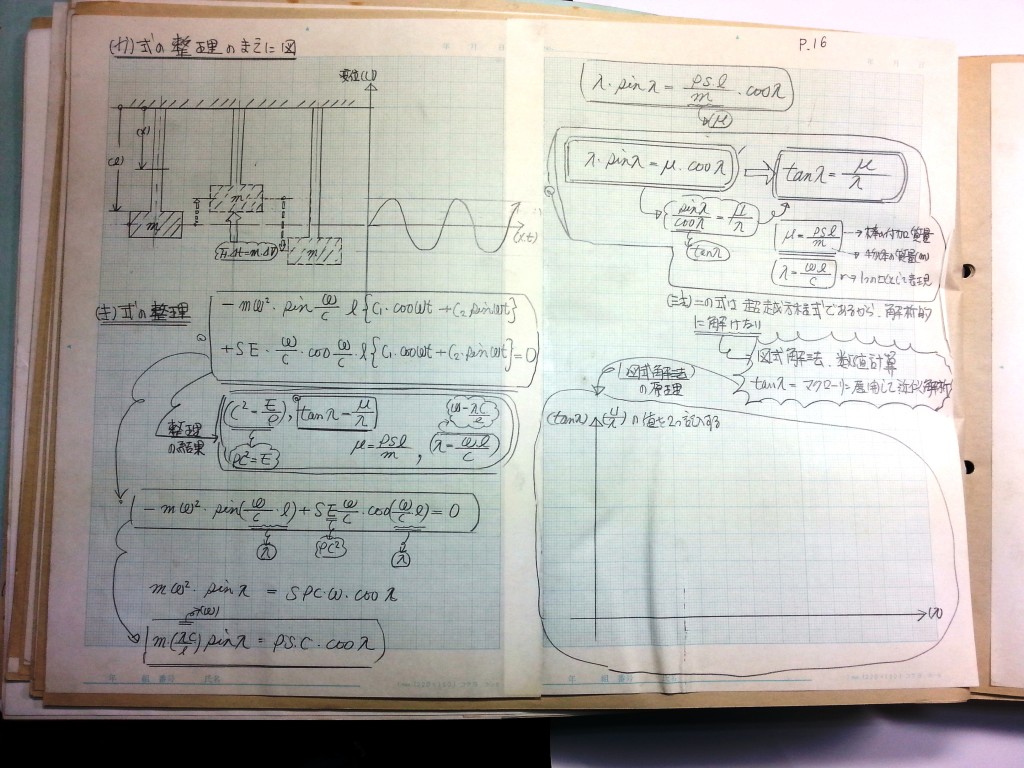 (カ)式の整理のまえに図
変位(U)
(x)
(l)
m
m
m
(x.t)
(き)式の整理
-mω²·sin ω/c l{C₁·cosωt+C₂sinωt}
+SE·ω/c·cos ω/c l{C₁·cosωt+C₂·sinωt}=0
整理の結果
C²=E/ρ, tanλ=μ/λ
ω=λc/l
ρC²=E
μ=ρsl/m, λ=ωl/c
-mω²·sin(ω/c·l)+SE ω/c·cos(ω/c·l)=0
λ
ρC²
λ
mω²·sinλ = SρC·ω·cosλ
m(λC/l)sinλ=ρS.C·cosλ
年 組 番号 氏名
P.16
λ·sinλ=ρsl/m·cosλ
(μ)
λ·sinλ=μ·cosλ ⇒ tanλ=μ/λ
sinλ/cosλ=μ/λ
tanλ
μ=ρsl/m
λ=ωl/c
この式は超越方程式であるから、解析的
に解けない
図式解法、数値計算
tanλ=マクローリン展開して近似解析
図式解法の原理
(tanλ)
(μ/λ)の値を2つ記入する
(λ)
年 組 番号 氏名